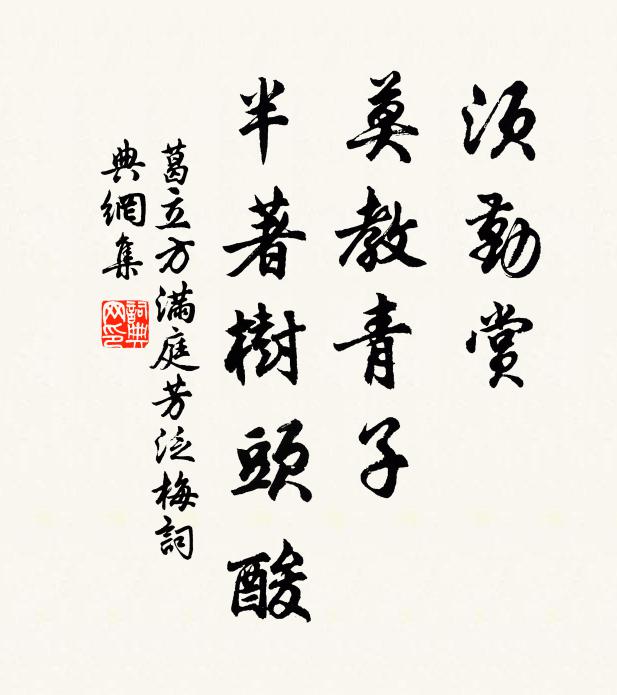 須勤賞
莫教青子
半著樹頭酸
葛立方滿庭芳泛梅詞
典網集
詞典
网印